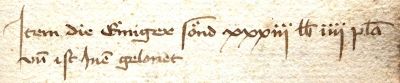 Item die Einiger sond xxxiii lb iiii pla
vn̄ ist Inen gelonet